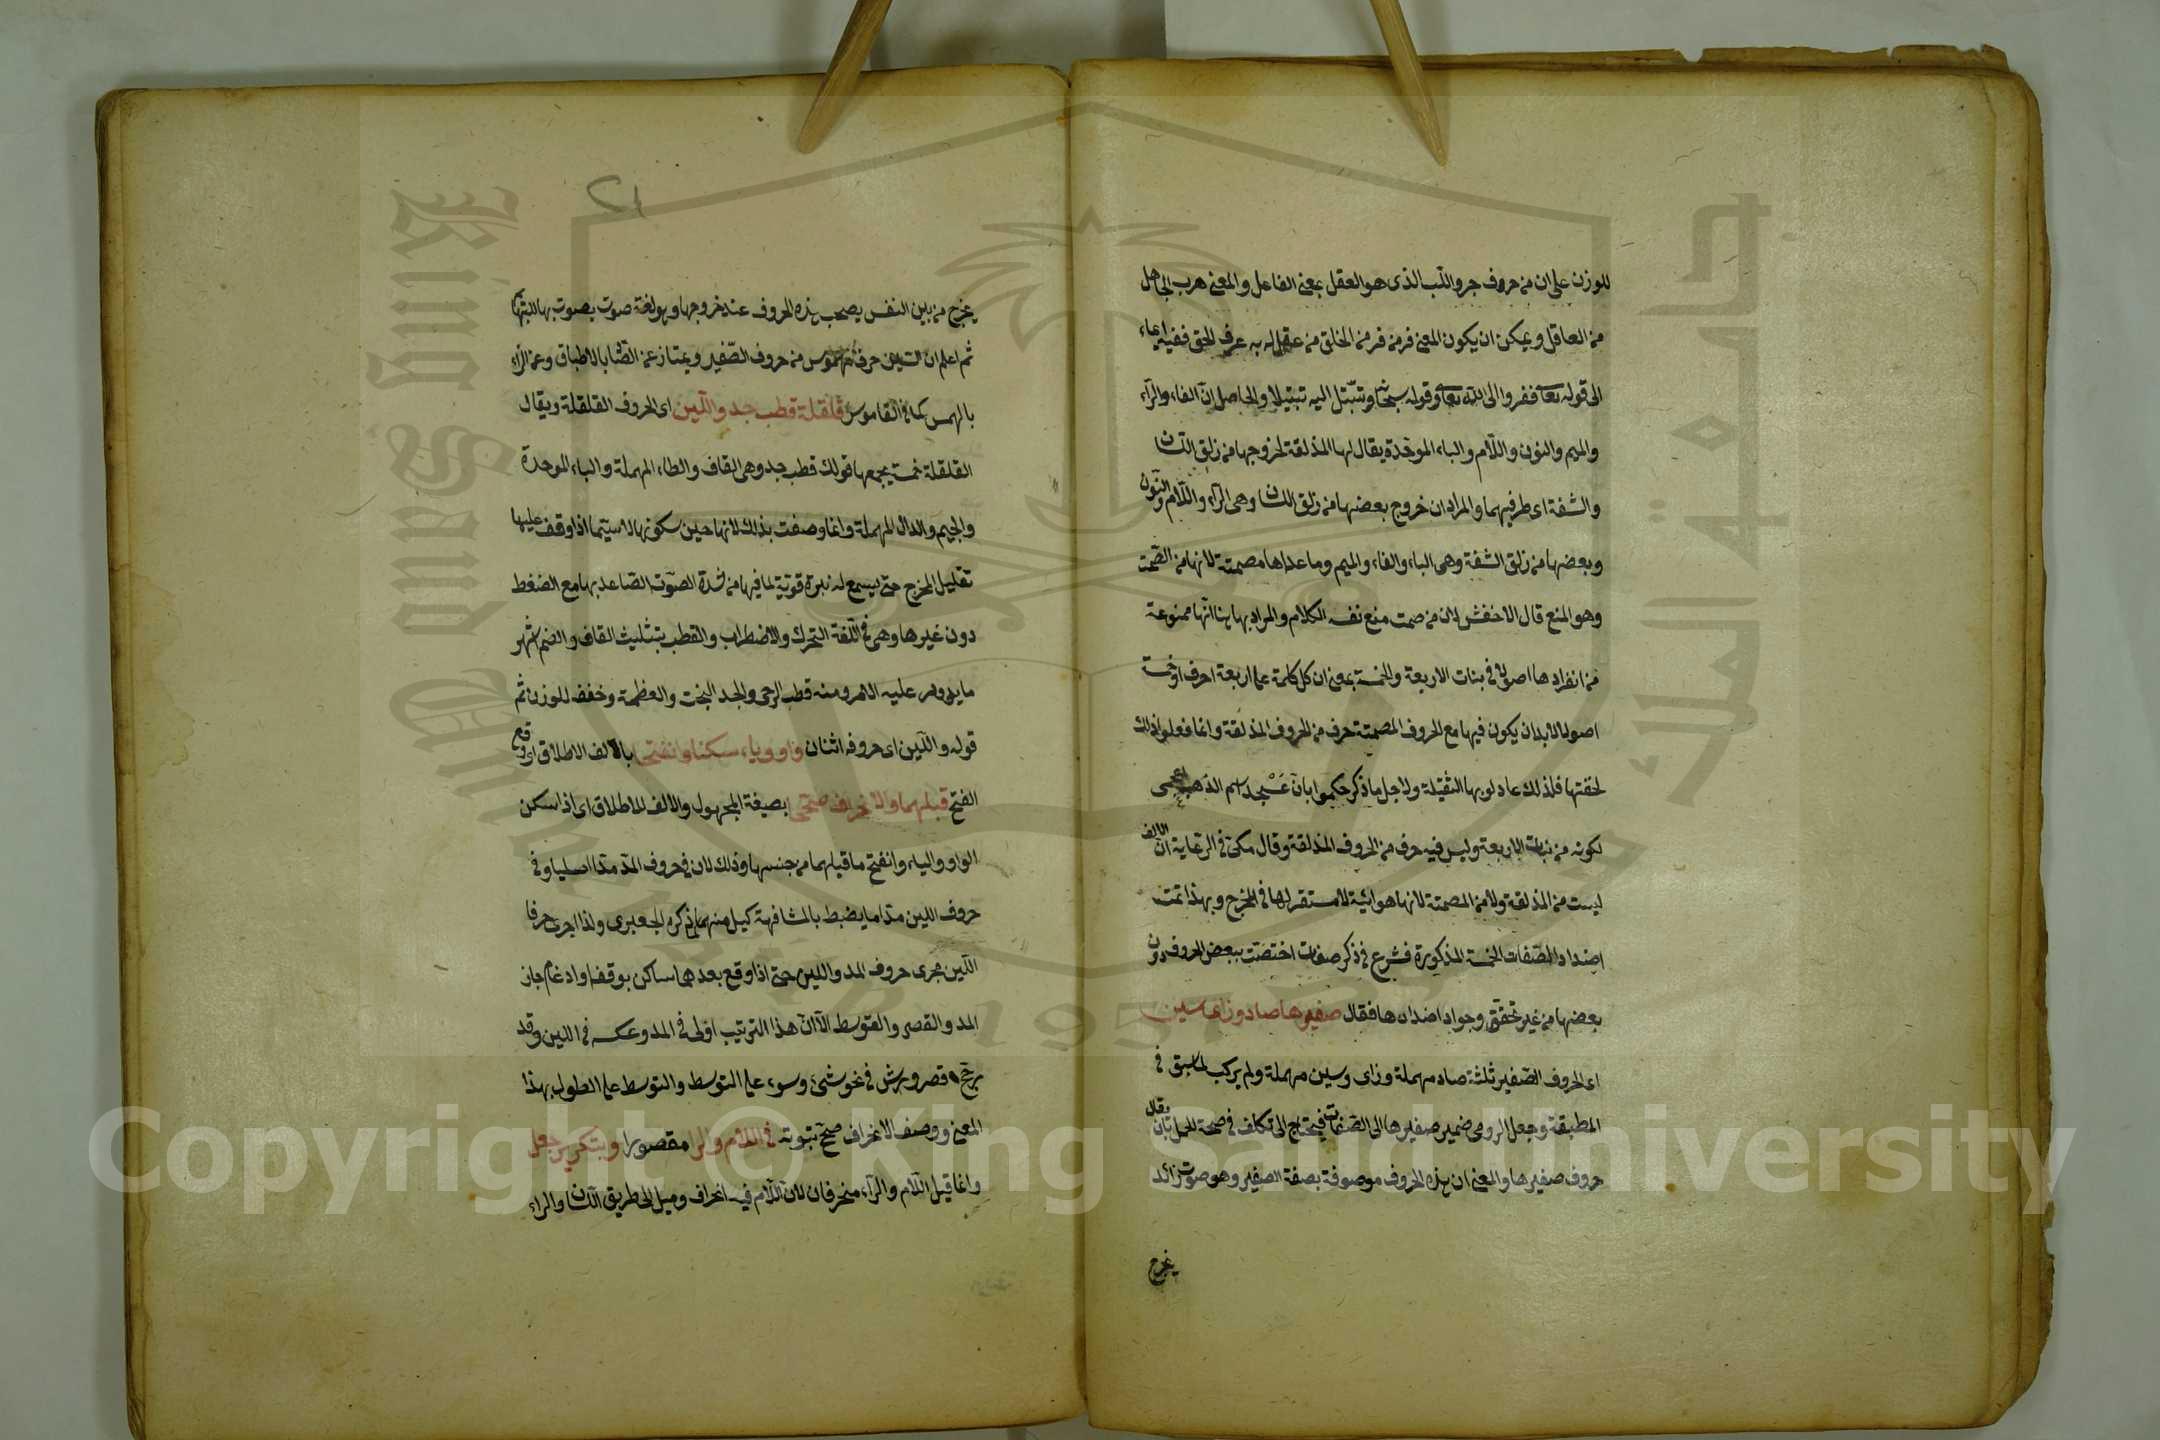 للوزن على ان من حروف جر واللب الذى هو العقل بمعنى الفاعل والمعنى هرب الجاهل
من العاقل ويمكن ان يكون المعنى فر من فر من الخلق من عقل له به عرف الحق ففيه ايماء
الى قوله تعالى ففروا الى الله تعالى وقوله سبحانه وتبتل اليه تبتيلا والحاصل ان الفاء والرآء
والميم والنون واللآم والباء الموحدة يقال لها المذلقة لخروجها من زلق اللسان
والشفة اى طرفيهما والمراد ان خروج بعضها من زلق اللسان وهى الرآء واللآم والنون
وبعضها من زلق الشفة وهى الباء والفاء والميم وما عداها مصمتة لانها من الصمت
وهو المنع قال الاخفش لان من صمت منع نفسه الكلام والمراد بها هنا انها ممنوعة
من انفرادها اصولا فى بنات الاربعة والخمسة بمعنى ان كل كلمة على اربعة احرف او خمسة
اصولا لابد ان يكون فيها مع الحروف المصمتة حرف من الحروف المذلقة وانما فعلوا ذلك
لخفتها فلذلك عادلوا بها الثقيلة ولاجل ما ذكر حكموا بان عسجد اسم الذهب اعجمى
لكونه من بنات الاربعة وليس فيه حرف من الحروف المذلقة وقال مكى فى الرعاية ان الالف
ليست من المذلقة ولا من المصمتة لانها هوائية لا مستقر لها فى المخرج وبهذا تمت
اضداد الصفات الخمسة المذكورة فشرع فى ذكر صفات اختصت ببعض الحروف دون
بعضها من غير تحقق وجود اضدادها فقال صفيرها صاد وزاى سين
اى الحروف الصفير ثلثة صاد مهملة وزاى وسين مهملة ولم يركب لما سبق فى
المطبقة وجعل الرومى ضمير صفيرها الى الصفات فيحتاج الى تكلف فى صحة الحمل بان يقال
حروف صفيرها والمعنى ان هذه الحروف موصوفة بصفة الصفير وهو صوت زائد
يخرج
٢١
يخرج من بين النفس يصحب هذه الحروف عند خروجها وهو لغة صوت يصوت بها للبهائم
ثم اعلم ان السين حرف مهموس من حروف الصفير ويمتاز عن الصاد بالاطباق وعن الزاء
بالهمس كما فى القاموس قلقلة قطب جد واللين اى الحروف القلقلة ويقال
القلقلة خمسة يجمعها قولك قطب جد وهى القاف والطاء المهملة والباء الموحدة
والجيم والدال المهملة وانما وصفت بذلك لانها حين سكونها لا سيما اذا وقف عليها
تقليل المخرج حتى يسمع له نبرة قوية لما فيها من شدة الصوت الصاعد بها مع الضغط
دون غيرها وهى فى اللغة التحرك والاضطراب والقطب بتثليث القاف والضم اشهر
ما يدور عليه الامر ومنه قطب الرحى والجد البخت والعظمة وخفف للوزن ثم
قوله واللين اى حروفه اثنان واو وياء سكنا وانفتحا بالالف الاطلاق اى وقع
الفتح قبلهما والانحراف صححا بصيغة المجهول والالف للاطلاق اى اذا سكن
الواو والياء وانفتح ما قبلهما من جنسها وذلك لان فى حروف المد مدا اصليا وفى
حروف اللين مدا ما يضبط بالمشافهة كيل منهما ذكره الجعبرى ولذا اجرى حرفا
اللين مجرى حروف المد واللين حتى اذا وقع بعدها ساكن بوقف او ادغام جاز
المد والقصر والتوسط الا ان هذا الترتيب اولى فى المد وعكسه فى اللين وقد
رجح قصر ورش فى نحو شئ وسوء على التوسط والتوسط على الطول بهذا
المعنى ووصف الانحراف صحح ثبوته فى اللام والرا مقصورا وبتكرير جعل
وانما قيل اللآم والرآء منحرفان لان اللآم فيه انحراف وميل الى طريق اللسان والراء
Copyright © King Saud University
King Saud University
جامعة الملك سعود
1957